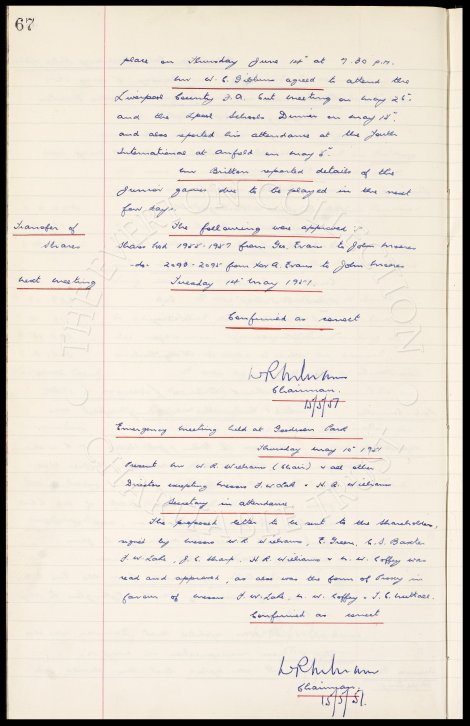 67
place on Thursday June 14th at 7.30 p.m.
Mr W. C. Gibbins agreed to attend the
Liverpool County F.A. Cup meeting on May 25th
and the Lpool Schools Dinner on May 18th
and also reported his attendance at the Youth
International at Anfield on May 5th
Mr Britton reported details of the
Junior games due to be played in the next
few days.
Transfer of
Shares
The following were approved:-
Shares Nod 1955-1957 from Geo. Evans to John Moores
-do- 2090-2095 from A. Evans to John Moores
next meeting
Tuesday May 1957.
Confirmed as correct
Chairman.
15/5/57
Emergency meeting held at Goodison Park
Thursday May 1957
Present Mr W. R. Williams (Chair) & all other
Directors excepting Messrs F. W. Lake & H. R. Williams
Secretary in attendance
The proposed letter to be sent to the Shareholders,
signed by Messrs W. R. Williams, E. Green, C. S. Baxter
F. W. Lake, J. C. Sharp, H. R. Williams & N. W. Coffey was
read and approved, as also was the form of Proxy in
favour of Messrs F. W. Lake, N. W. Coffey &
Confirmed as correct
Chairman.
15/5/57.
THE EVERTON COLLECTION
CHARITABLE TRUST